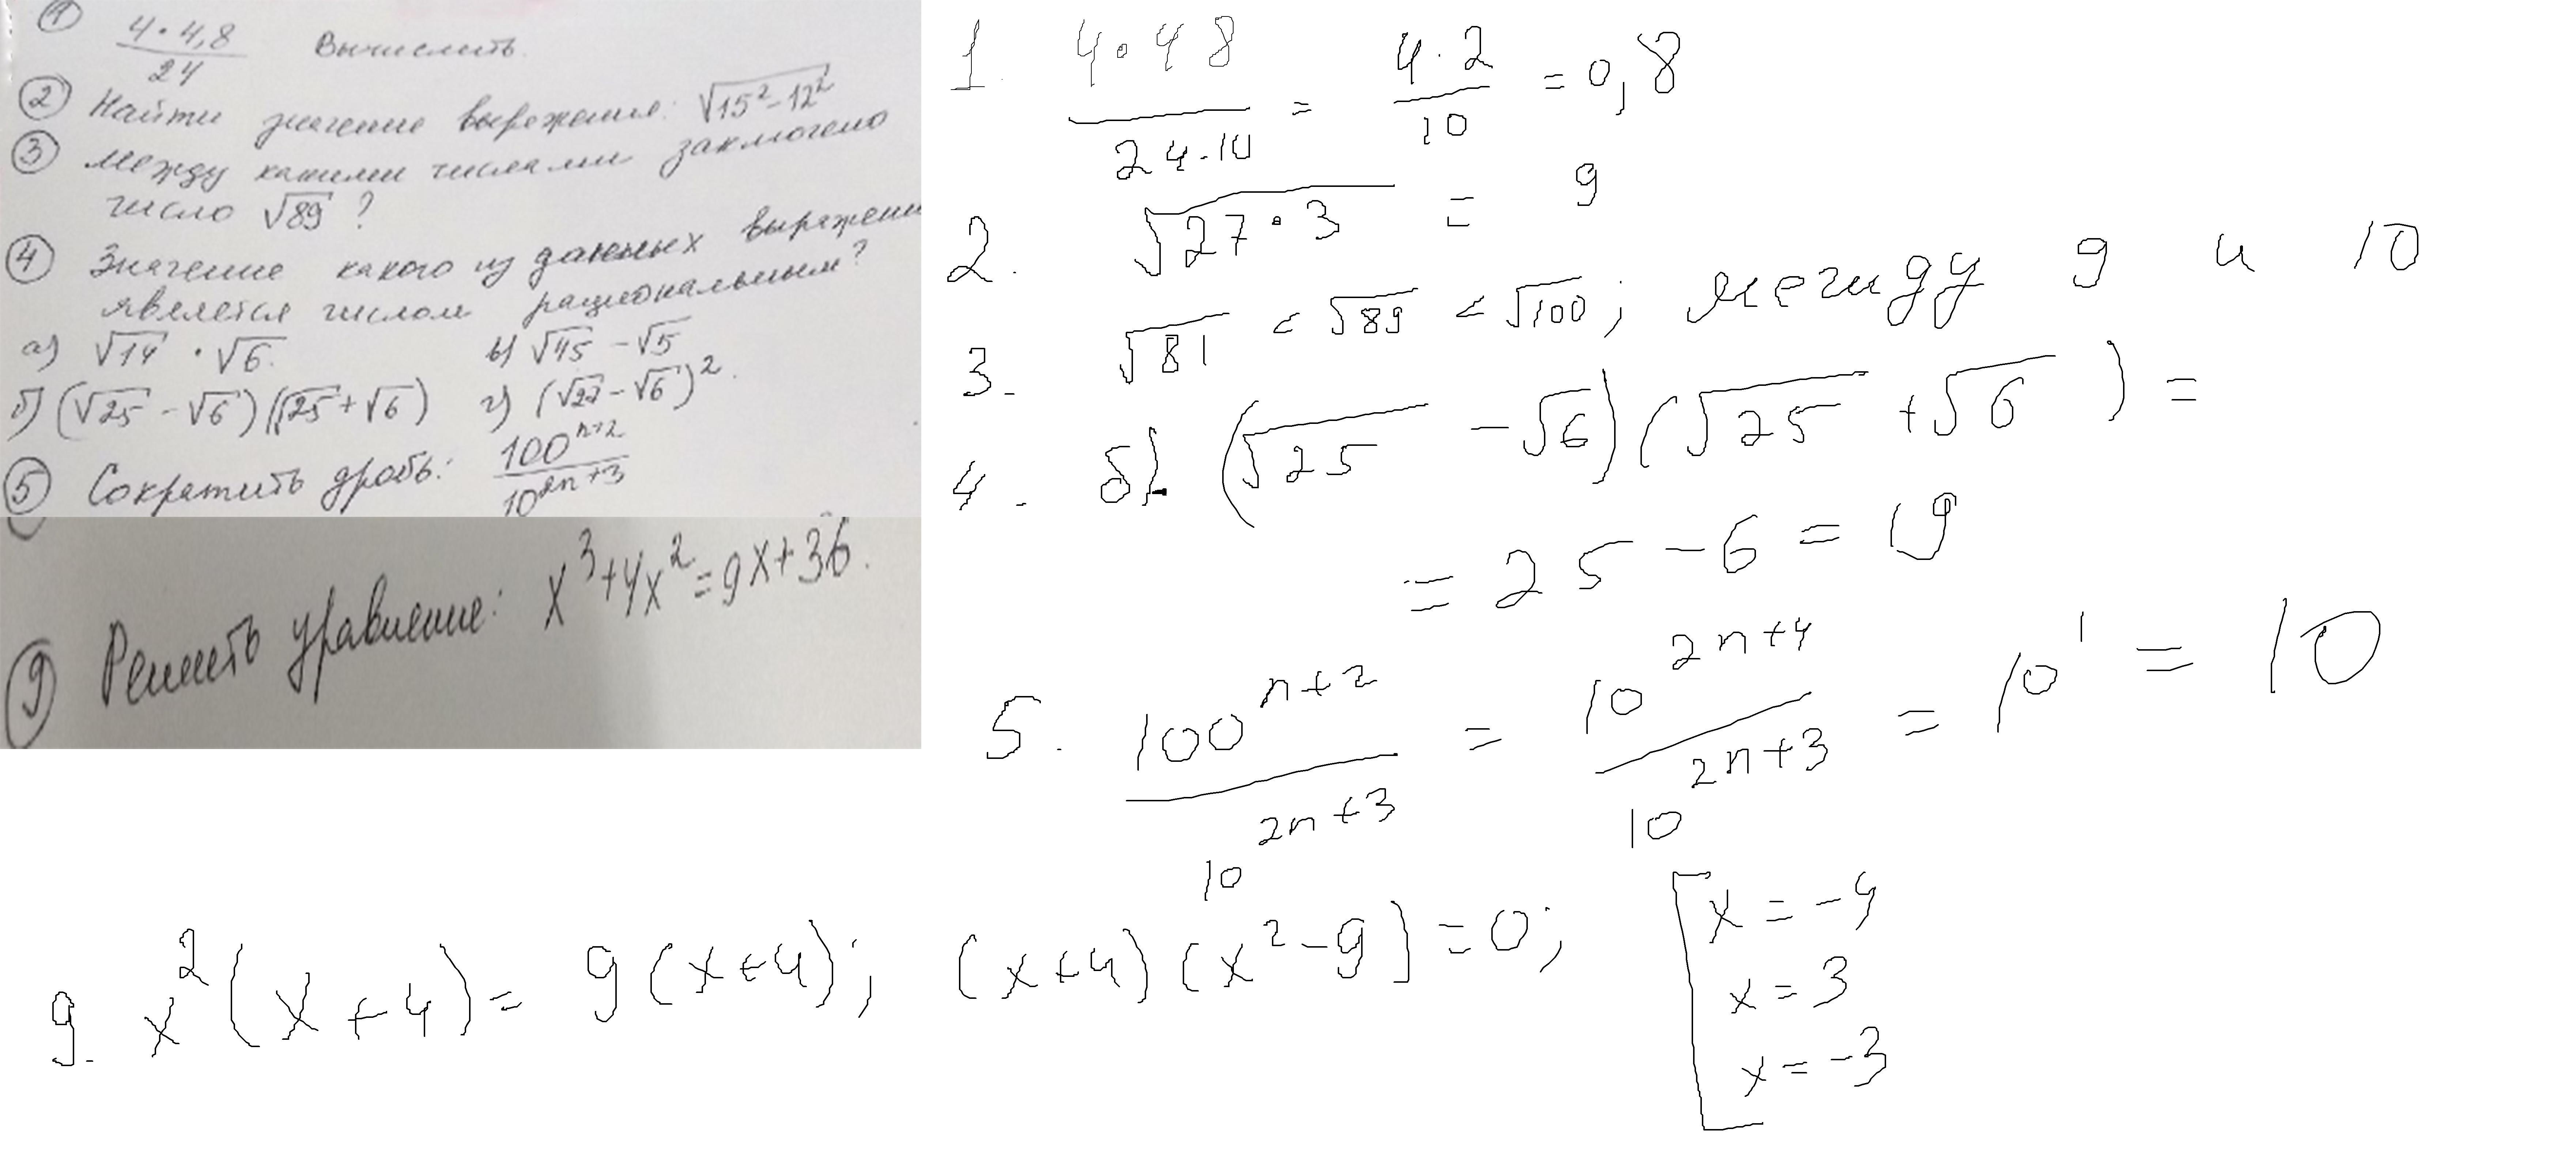 ① 4·4,8/24 Вычислить.
② Найти значение выражения: √(15²-12²)
③ Между какими числами заключено
число √89 ?
④ Значение какого из данных выражени
является числом рациональным?
а) √14 · √6. в) √45 - √5
б) (√25 - √6)(√25 + √6) г) (√27 - √6)².
⑤ Сократить дробь: 100^(n+2)/10^(2n+3)
⑨ Решить уравнение: x³+4x²=9x+36.
1. 4·48/(24·10) = 4·2/10 = 0,8
2. √(27·3) = 9
3. √81 < √89 < √100; между 9 и 10
4. б) (√25 - √6)(√25 + √6) =
= 25 - 6 = 19
5. 100^(n+2)/10^(2n+3) = 10^(2n+4)/10^(2n+3) = 10¹ = 10
9. x²(x+4) = 9(x+4); (x+4)(x²-9) = 0; [x = -4
x = 3
x = -3